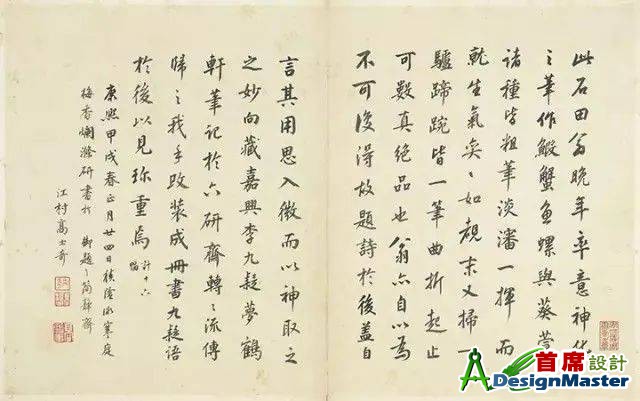 此石田翁晚年率意神化
之筆作鰕蟹魚螺與葵萱
諸種皆粗筆淡瀋一揮而
就生氣奕〻如覩末又掃一
驢蹄踠皆一筆曲折起止
可數真絕品也翁亦自以為
不可復得故題詩於後蓋自
言其用思入微而以神取之
之妙向藏嘉興李九疑夢鶴
軒筆記於六研齋轉〻流傳
歸之我手改裝成冊書九疑語
於後以見珍重焉 計十六幅
康熙甲戌春正月廿四日積陰微寒庭
梅香爛滌研書於 御題之簡靜齋
江村高士奇
首席設計
DesignMaster